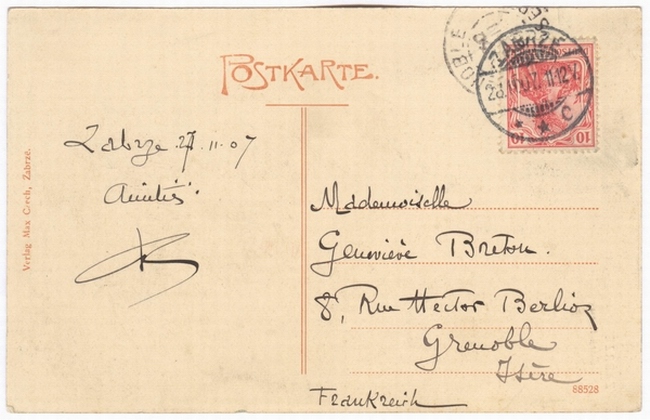 POSTKARTE.
ZABRZE
C
10 10
Zabrze 27.11.07
Amitiés
Mademoiselle
Geneviève Breton.
8, Rue Hector Berlioz
Grenoble
Isère
Frankreich
88528
Verlag Max Czech, Zabrze.